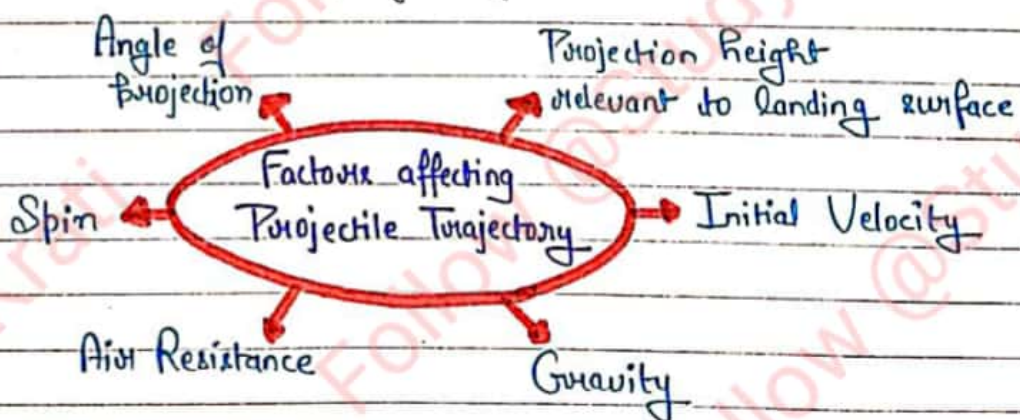 Angle of
projection
Projection height
relevant to landing surface
Factors affecting
Projectile Trajectory
Spin
Initial Velocity
Air Resistance
Gravity
Follow @Study